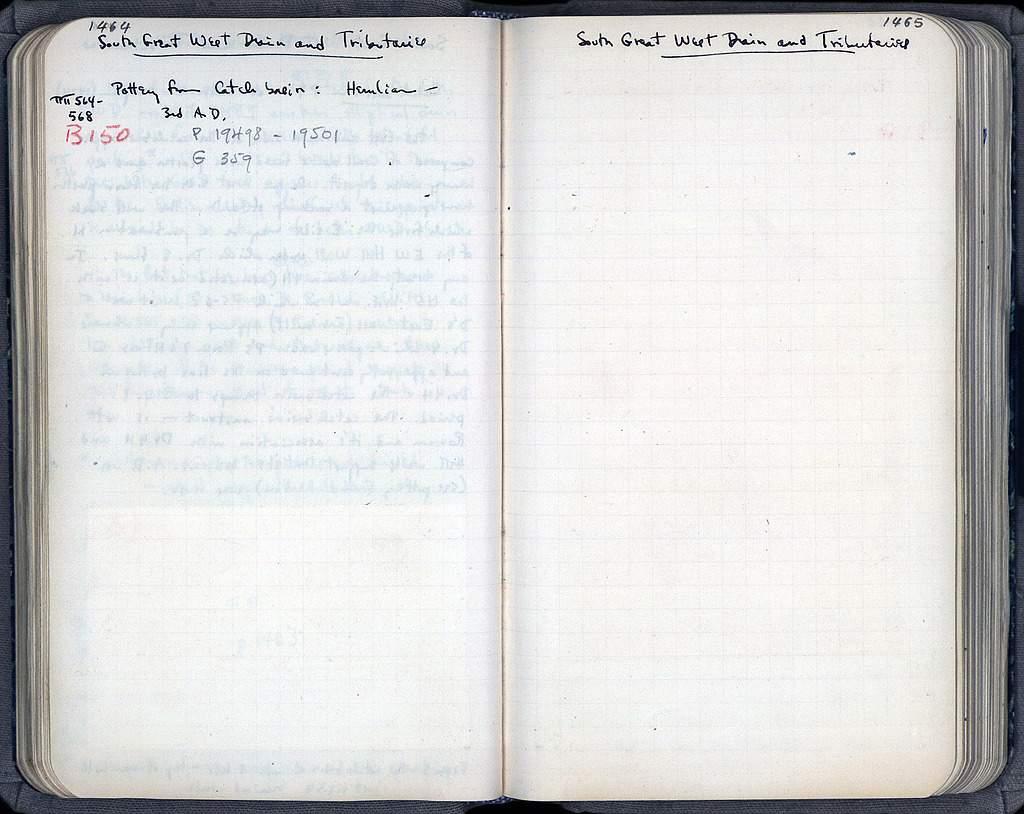 1464
South Great West Drain and Tributaries
Pottery from Catch basin :
ΠΠ 564-
568
3rd A.D.
B150
P 19498 - 19501
G 359
1465
South Great West Drain and Tributaries